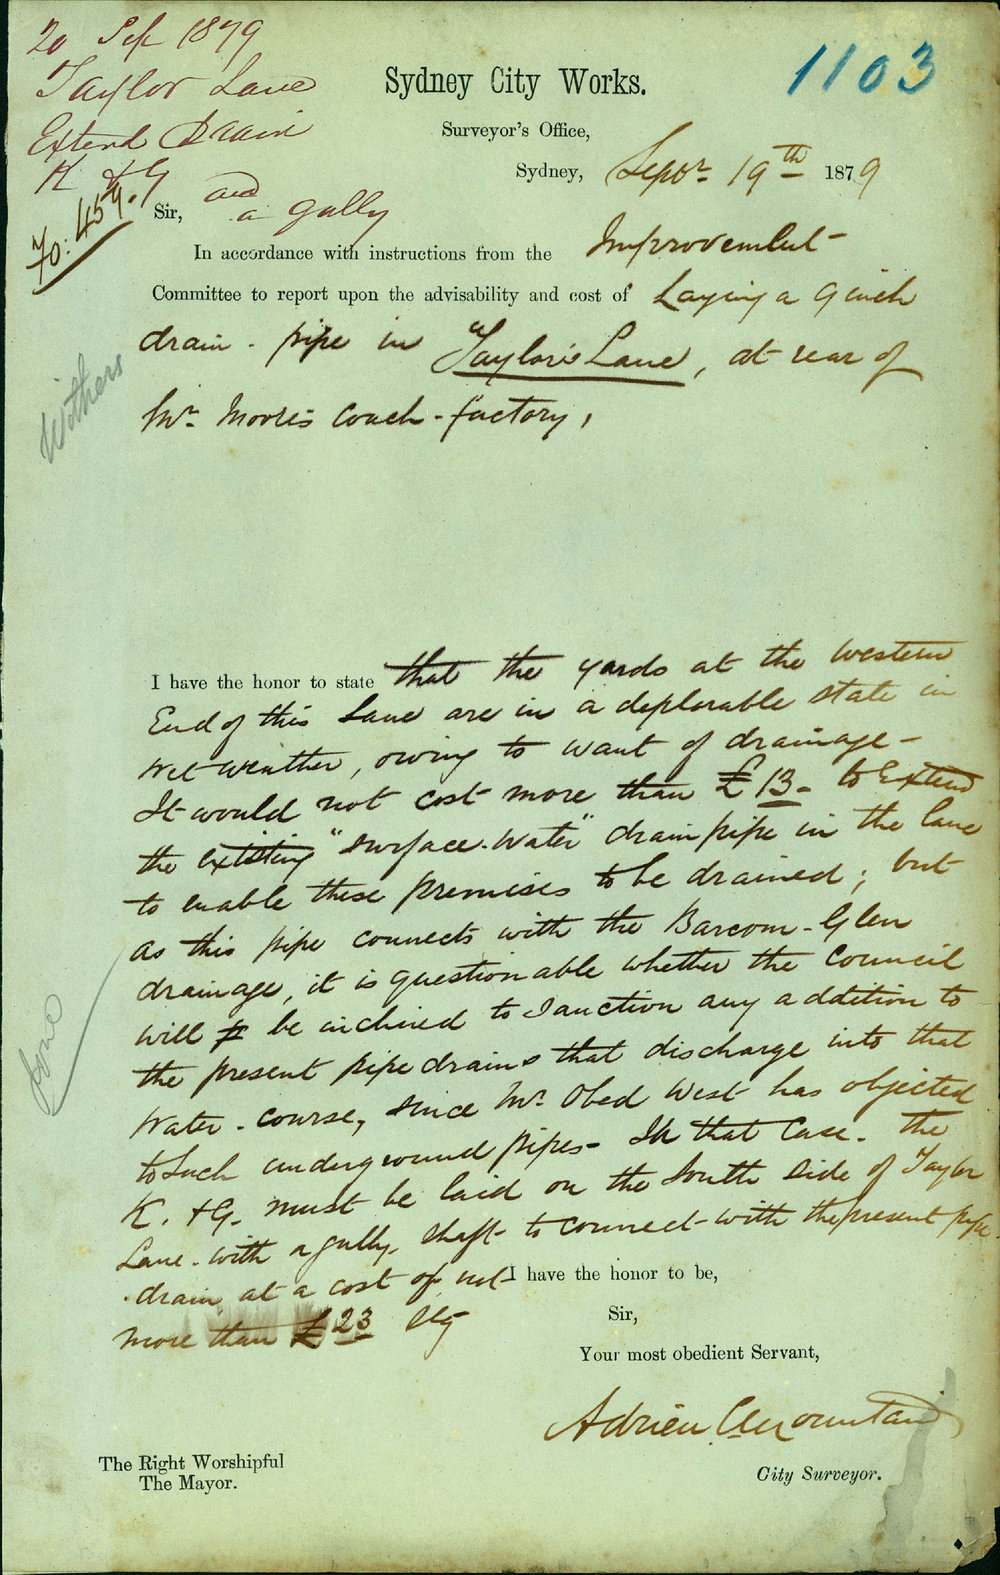 20 Sep 1879
Taylor Lane
Extend Drain
K & G
and
a gully
70: 459.
1103
Sydney City Works.
Surveyor's Office,
Sydney, Sepr. 19th 1879
Sir,
In accordance with instructions from the Improvement
Committee to report upon the advisability and cost of Laying a 9 inch
drain-pipe in Taylor's Lane, at rear of
Mr. Moore's Coach-factory,
Withers
I have the honor to state that the yards at the Western
End of this Lane are in a deplorable state in
Wet weather, owing to want of drainage—
It would not cost more than £13— to Extend
the existing "surface-water" drain pipe in the lane
to enable these premises to be drained; but
as this pipe connects with the Barcom-Glen
drainage, it is questionable whether the Council
will be inclined to Sanction any addition to
the present pipe drains that discharge into that
Water-course, since Mr. Obed West has objected
to Such underground pipes— In that Case— the
K. & G. must be laid on the South Side of Taylor
Lane—with a gully-shaft to connect with the present pipe
drain at a cost of not
more than £23 Stg
Done
I have the honor to be,
Sir,
Your most obedient Servant,
Adrien C Mountain
City Surveyor.
The Right Worshipful
The Mayor.